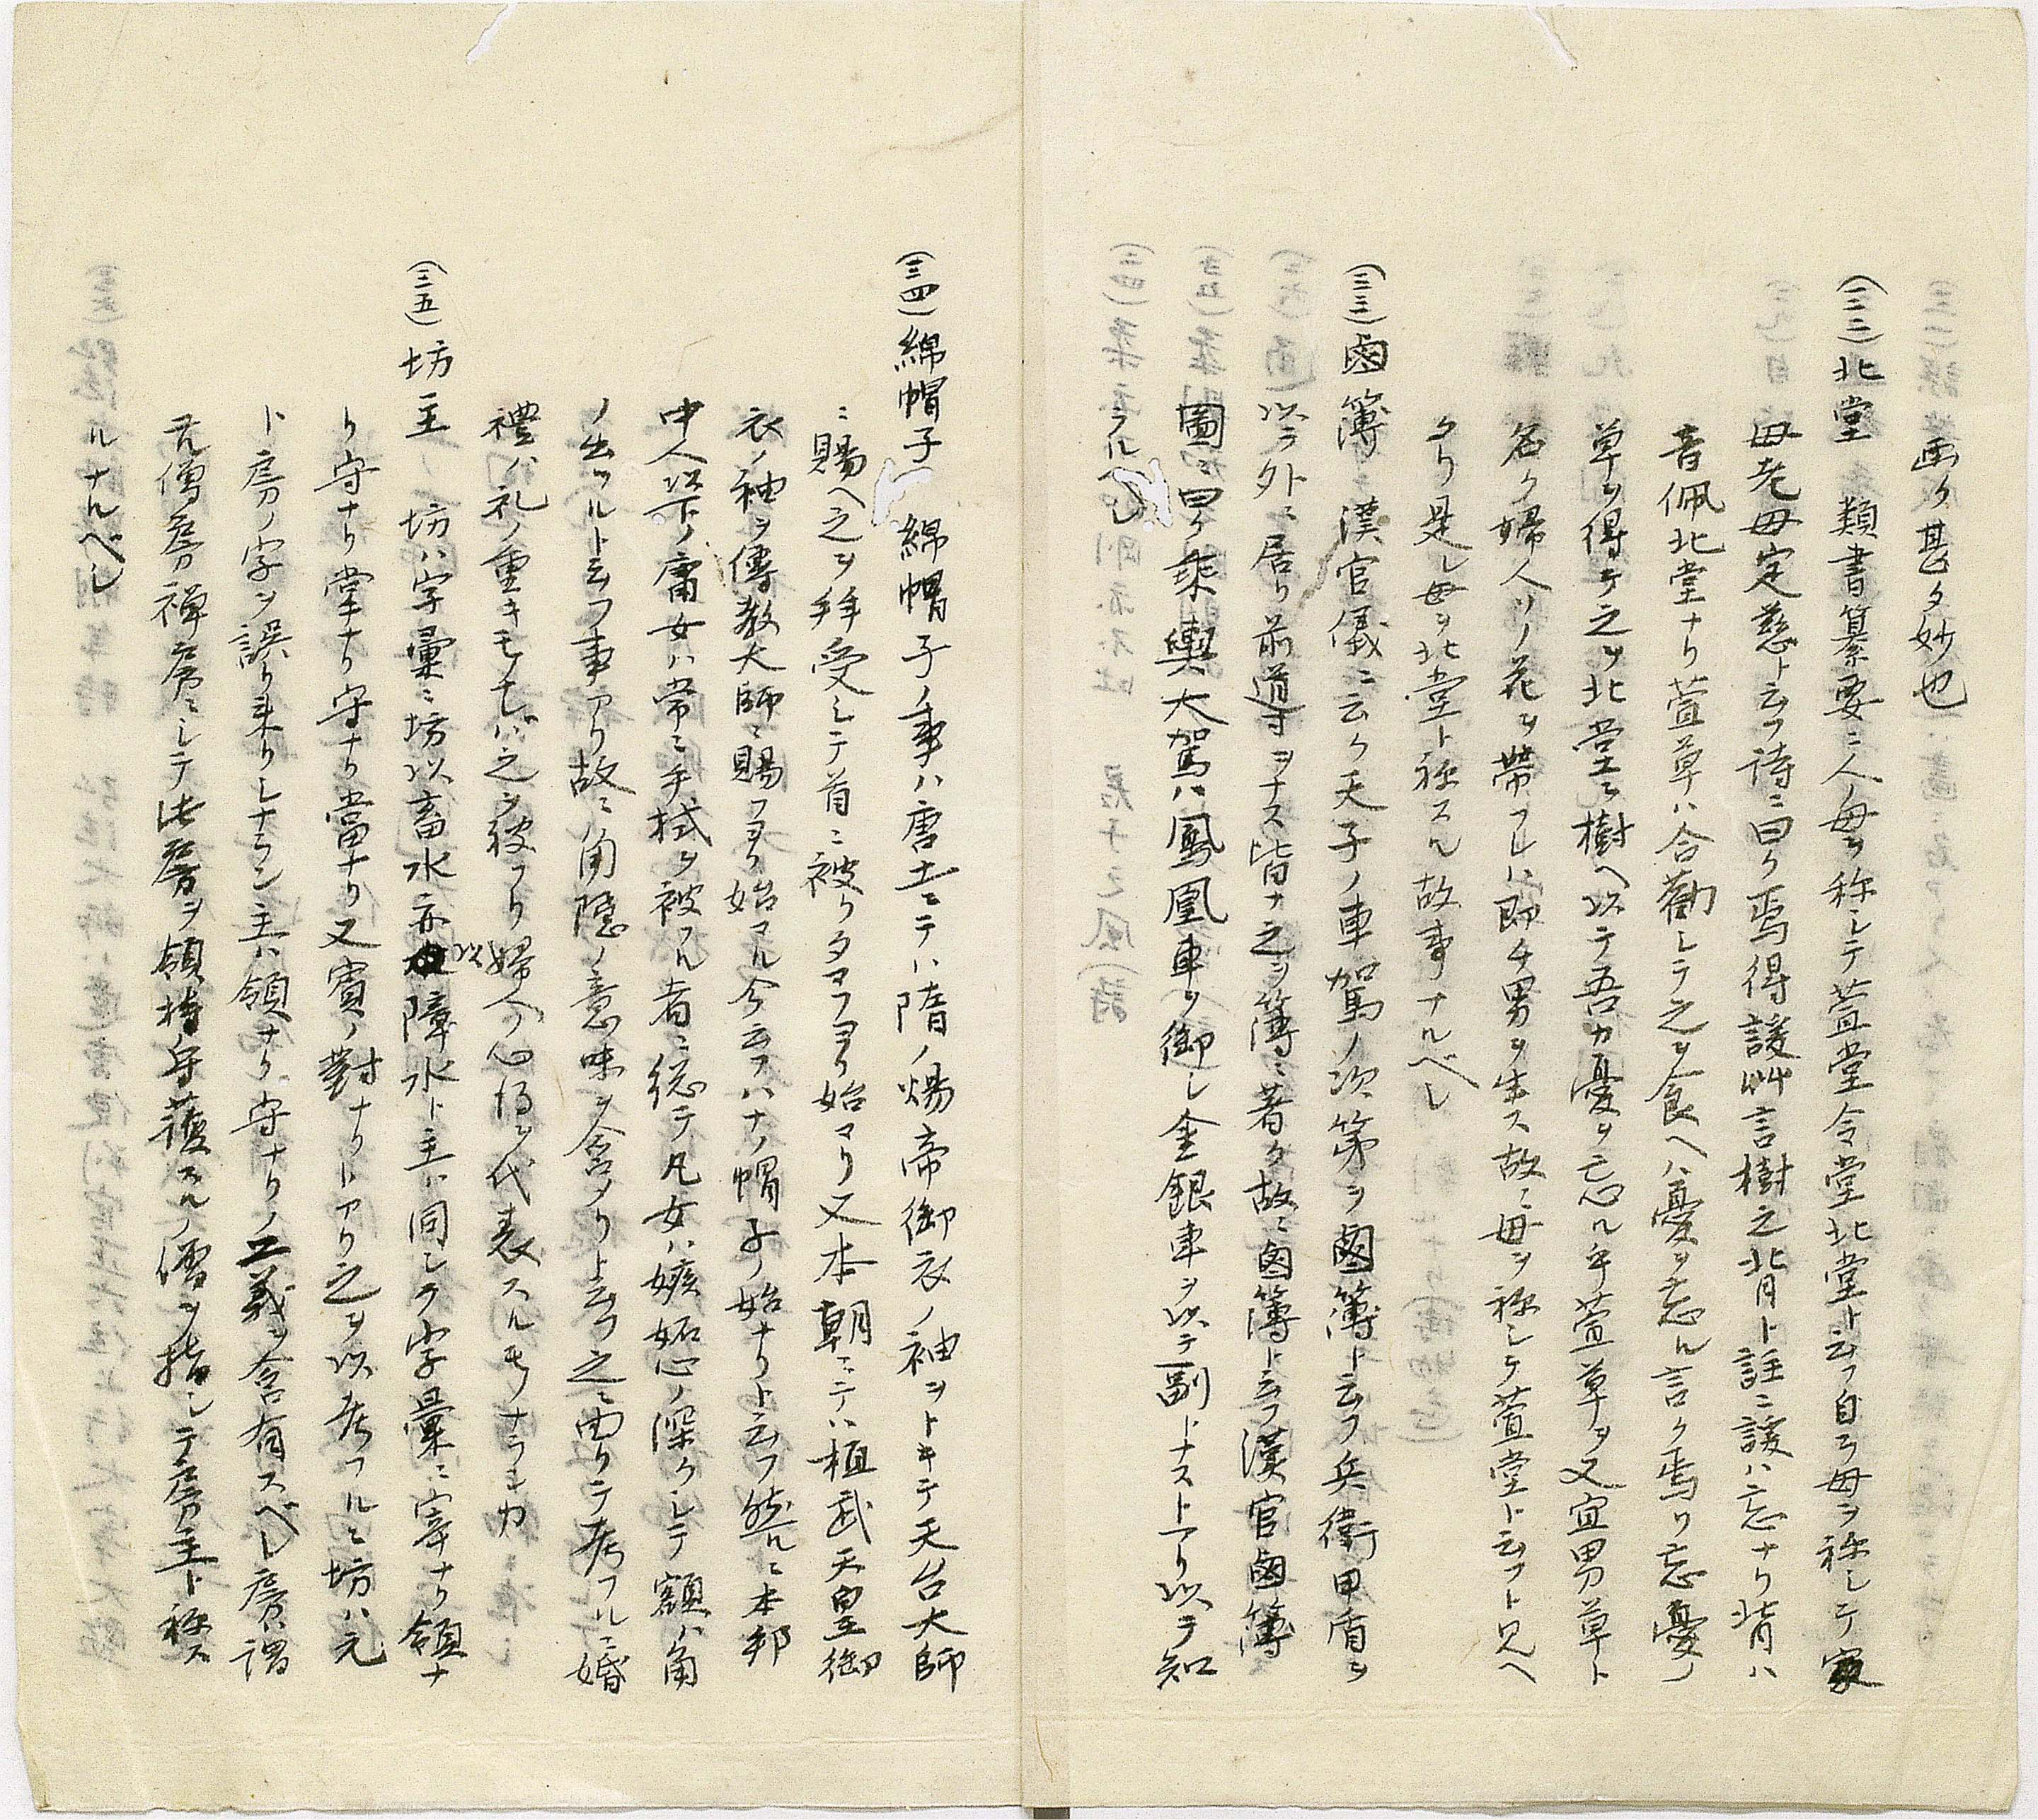 画ク甚タ妙也
(三二)北堂 類書纂要ニ人母ヲ称シテ萱堂令堂北堂ト云フ自ラ母ヲ称シテ家
母老母定慈ト云フ詩ニ曰ク焉得諼艸言樹之背ト註ニ諼ハ忘ナリ背ハ
音佩北堂ナリ萱草ハ合勸シテ之ヲ食ヘハ憂ヲ忘ル言ク焉リ忘憂ノ
草ヲ得テ之ヲ北堂ニ樹ヘ以テ吾カ憂ヲ忘ルヽ乎萱草ヲ又宜男草ト
名ク婦人リノ花ヲ帶フレハ即チ男ヲ生ス故ニ母ヲ称シテ萱堂ト云フト見ヘ
タリ是レ母ヲ北堂ト称スル故事ナルベシ
(三三)鹵簿 漢官儀ニ云ク天子ノ車駕ノ次第ヲ鹵簿ト云フ兵衛甲盾ヲ
以テ外ニ居リ前導ヲナス皆ナ之ヲ簿ニ著ク故ニ鹵簿ト云フ漢官鹵簿
圖ニ曰ク乘輿大駕ハ鳳凰車ヲ御シ金銀車ヲ以テ副トナストアリ以テ知
ラルベシ
(三四)綿帽子 綿帽子ノ事ハ唐土ニテハ隋ノ煬帝御衣ノ袖ヲトキテ天台大師
ニ賜ヘ之ヲ拜受シテ首ニ被リタマフヨリ始マリ又本朝ニテハ桓武天皇御
衣ノ袖ヲ傳教大師ニ賜フヨリ始マル今云フハナノ帽子ノ始ナリト云フ然ルニ本邦
中人以下ノ庸女ハ常ニ手拭ヲ被フル者ニ総テ凡女ハ嫉妬心ノ深クシテ額ハ角
ノ出ツルト云フ事アリ故ニ角隠ノ意味ヲ含メリト云フ之ニ由リテ考フルニ婚
禮ハ礼ノ重キモノナレバ之ヲ被フリ婦人ノ心得ヲ代表スルモノナランカ
(三五)坊主 坊ハ字彙ニ坊以畜水亦以障水ト主ハ同シク字彙ニ宰ナリ領ナ
リ守ナリ掌ナリ守ナリ當ナリ又賓ノ對ナリトアリ之ヲ以考フルニ坊ハ元
ト房ノ字ヲ誤リ来リシナラン主ハ領ナリ守ナリノ二義ヲ含有スベシ房ハ謂
ル僧房禪房ニシテ此房ヲ領持守護スルノ僧ヲ指シテ房主ト称ス
ルナルベシ